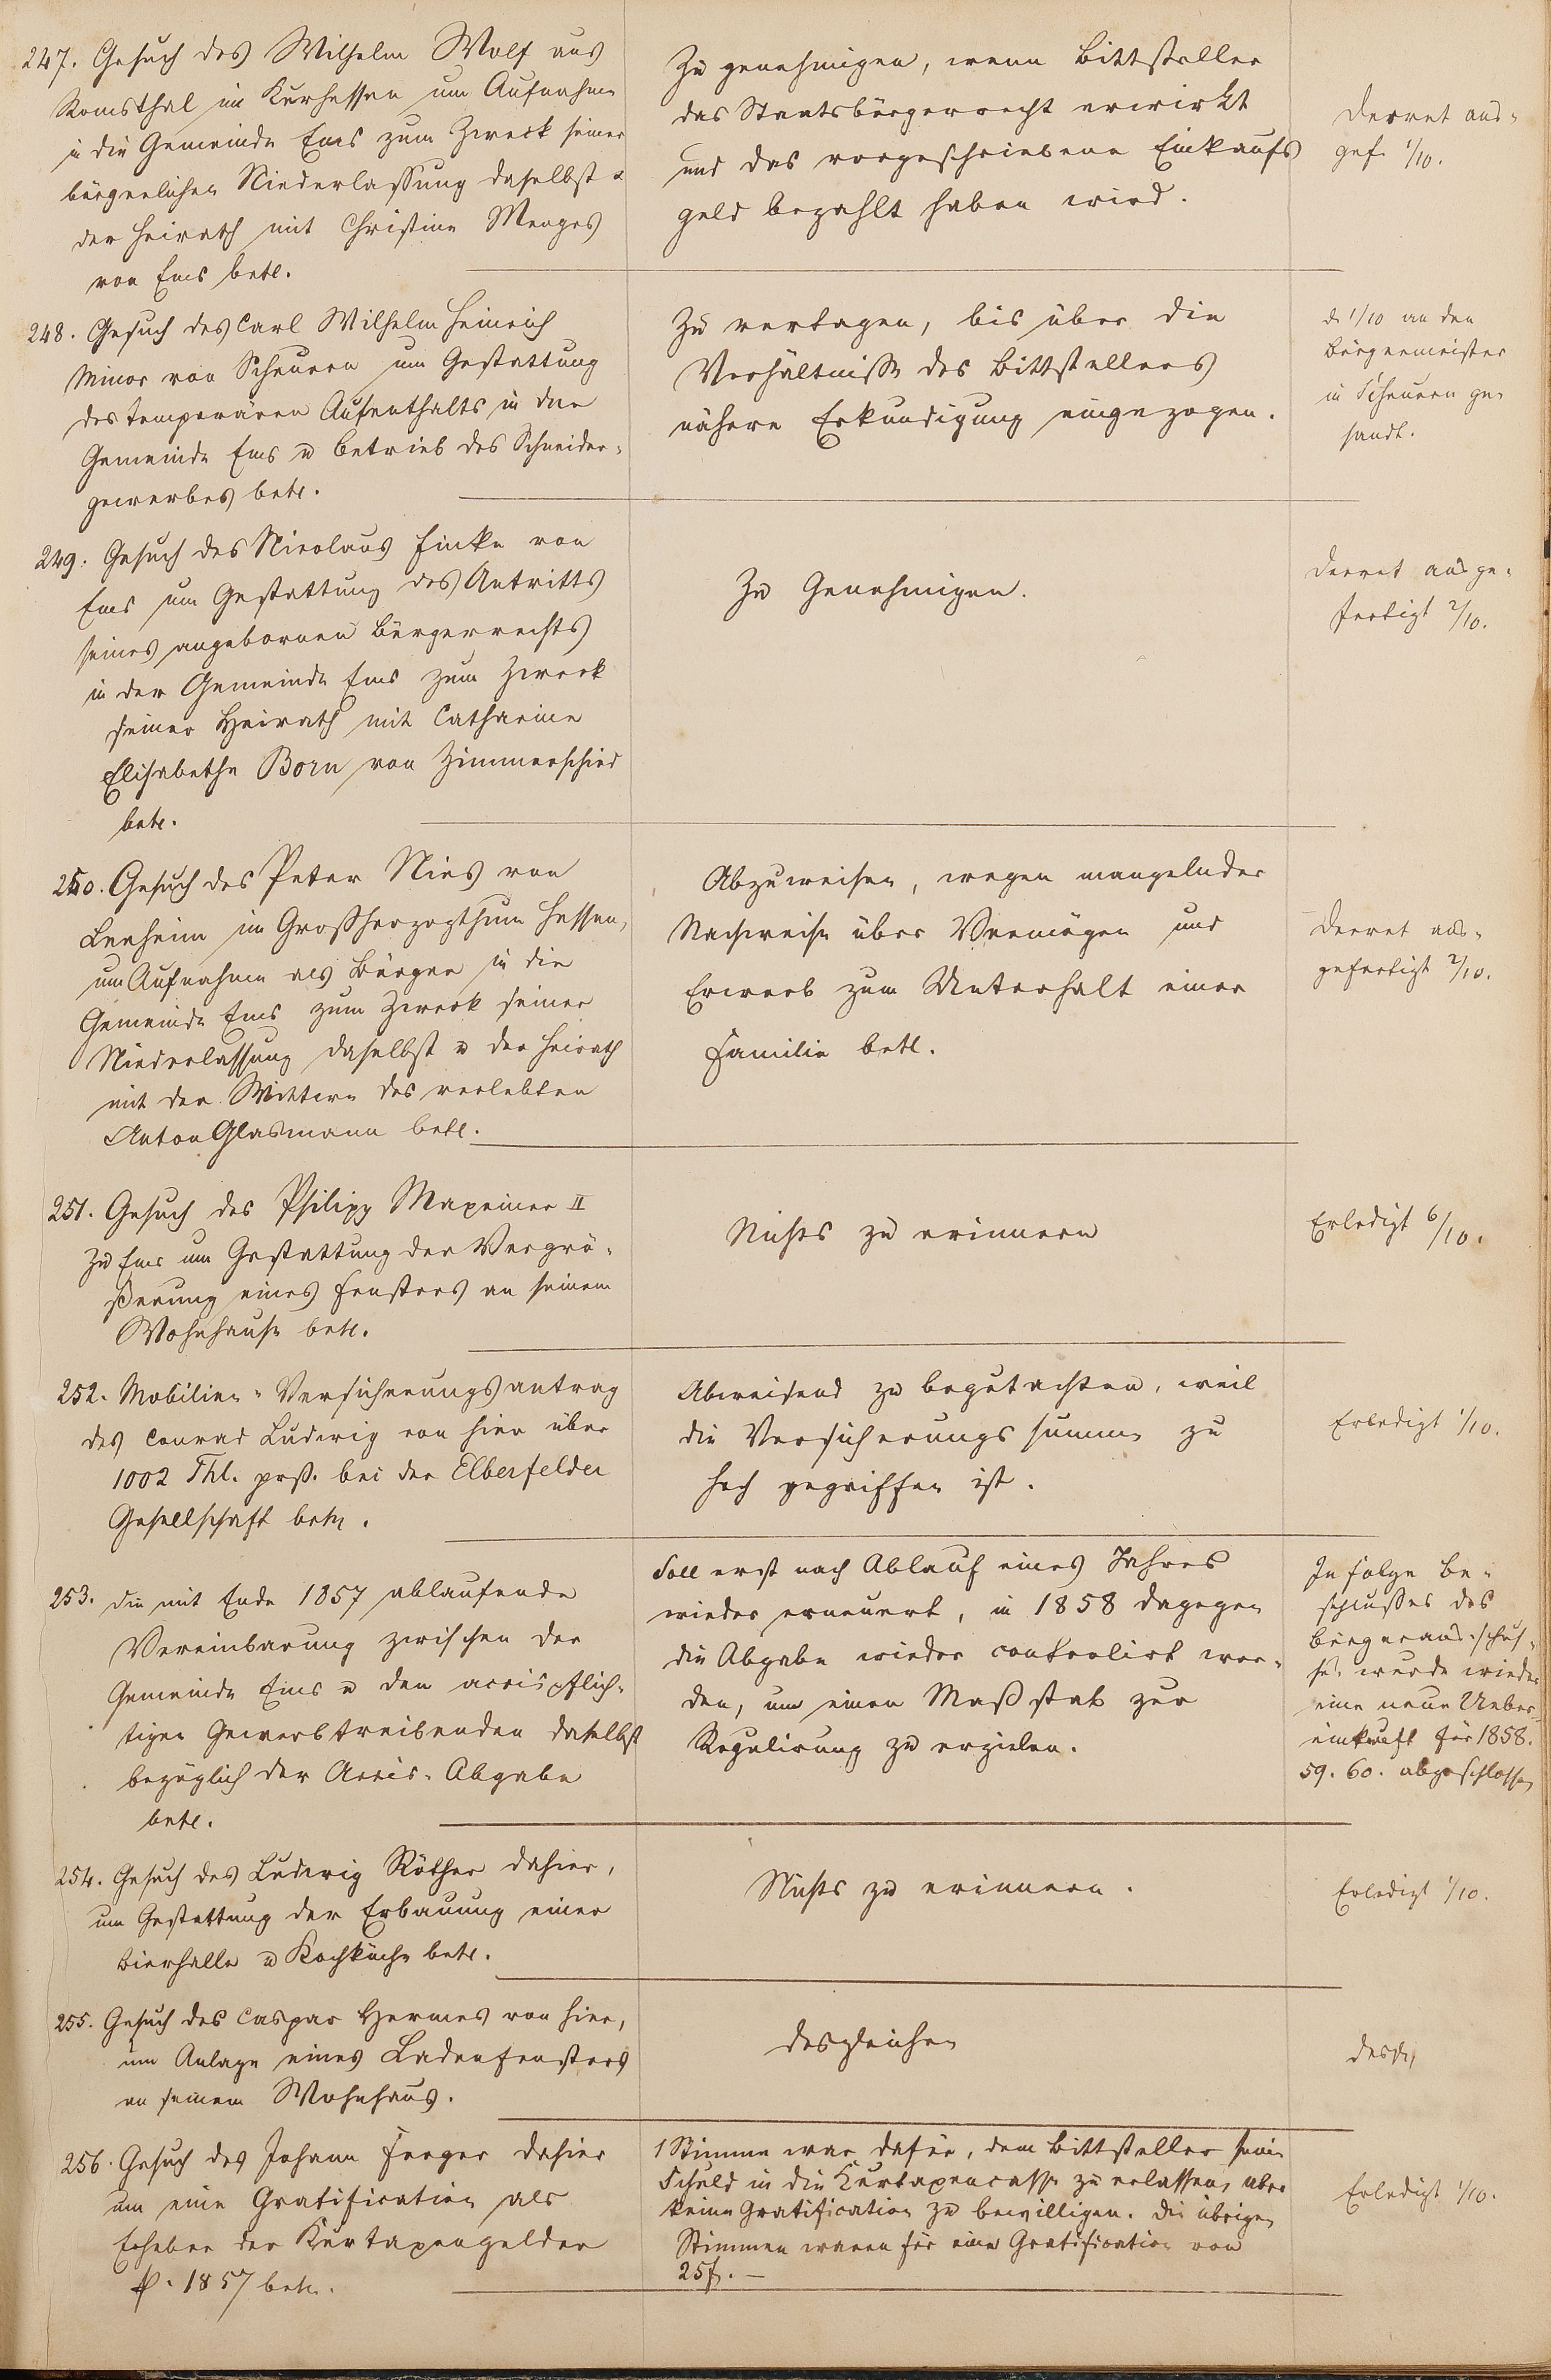 247. Gesuch des Wilhelm Wolf aus
Romsthal in Kurhessen um Aufnahme
in die Gemeinde Ems zum Zweck seiner
bürgerlichen Niederlassung daselbst u
der Heirath mit Christine Menges
von Ems betr.
Zu genehmigen, wenn Bittsteller
das Staatsbürgerrecht erwirkt
und das vorgeschriebene Einkaufs
geld bezahlt haben wird.
Decret aus-
gef. 1/10.
248. Gesuch des Carl Wilhelm Heinrich
Minor von Scheuern um Gestattung
des temporären Aufenthalts in der
Gemeinde Ems u Betrieb des Schneider-
gewerbes betr.
Zu vertagen, bis über die
Verhältnisse des Bittstellers
nähere Erkundigung eingezogen.
d. 1/10 an den
Bürgermeister
in Scheuern ge-
sandt.
249. Gesuch des Nicolaus Finke von
Ems um Gestattung des Antritts
seines angebornen Bürgerrechts
in der Gemeinde Ems zum Zweck
seiner Heirath mit Catharine
Elisabethe Born von Zimmerschied
betr.
Zu Genehmigen.
Decret ausge-
fertigt 2/10.
250. Gesuch des Peter Nies von
Leeheim im Großherzogthum Hessen,
um Aufnahme als Bürger in die
Gemeinde Ems zum Zweck seiner
Niederlassung daselbst u der Heirath
mit der Wittwe des verlebten
Anton Glasmann betr.
Abzuweisen, wegen mangelnder
Nachweise über Vermögen und
Erwerb zum Unterhalt einer
Familie betr.
Decret aus-
gefertigt 2/10.
251. Gesuch des Philipp Maxeiner II
zu Ems um Gestattung der Vergrö-
ßerung eines Fensters an seinem
Wohnhause betr.
Nichts zu erinnern
Erledigt 6/10.
252. Mobilien-Versicherungsantrag
des Conrad Ludwig von hier über
1002 Thl. prß. bei der Elberfelder
Gesellschaft betr.
Abweisend zu begutachten, weil
die Versicherungssumme zu
hoch gegriffen ist.
Erledigt 1/10.
253. die mit Ende 1857 ablaufende
Vereinbarung zwischen der
Gemeinde Ems u den accispflich-
tigen Gewerbtreibenden daselbst
bezüglich der Accis-Abgabe
betr.
Soll erst nach Ablauf eines Jahres
wieder erneuert, in 1858 dagegen
die Abgabe wieder controlirt wer-
den, um einen Maßstab zur
Regulirung zu erzielen.
In folge Be-
schlußes des
Bürgerausschus-
ses wurde wieder
eine neue Ueber-
einkunft für 1858.
59. 60. abgeschlossen
254. Gesuch des Ludwig Röther dahier,
um Gestattung der Erbauung einer
Bierhalle u Kochküche betr.
Nichts zu erinnern.
Erledigt 1/10.
255. Gesuch des Caspar Hermes von hier,
um Anlage eines Ladenfensters
an seinem Wohnhaus.
desgleichen
desgl.
256. Gesuch des Johann Feeger dahier
um eine Gratification als
Erheber der Kurtaxengelder
p. 1857 betr.
1 Stimme war dafür, dem Bittsteller seine
Schuld in die Kurtaxencasse zu erlassen, aber
keine Gratification zu bewilligen. Die übrigen
Stimmen waren für eine Gratification von
25 f. —
Erledigt 1/10.